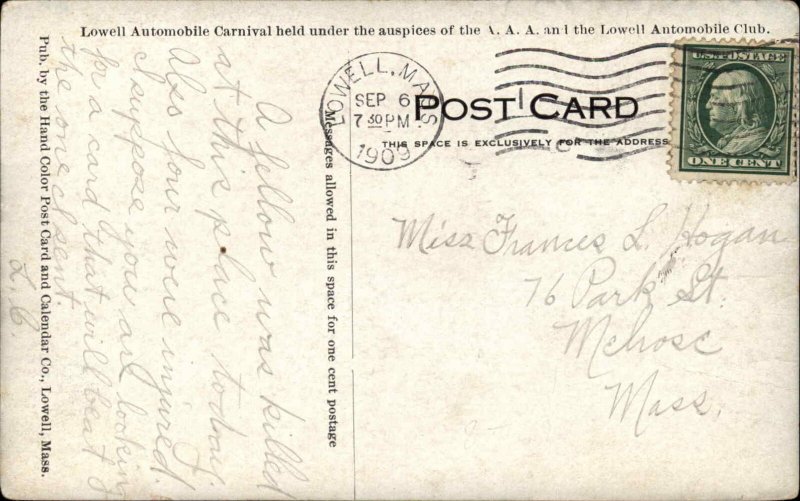 Lowell Automobile Carnival held under the auspices of the A. A. A. and the Lowell Automobile Club.
LOWELL, MASS
SEP 6
7 30 PM
1909
U.S. POSTAGE
ONE CENT
POST CARD
THIS SPACE IS EXCLUSIVELY FOR THE ADDRESS
Messages allowed in this space for one cent postage
A fellow was killed
at this place today.
Also four were injured.
I suppose you are looking
for a card that will beat
the one I sent.
L. C
Miss Frances L. Hogan
76 Park St.
Melrose
Mass.
Pub. by the Hand Color Post Card and Calendar Co., Lowell, Mass.